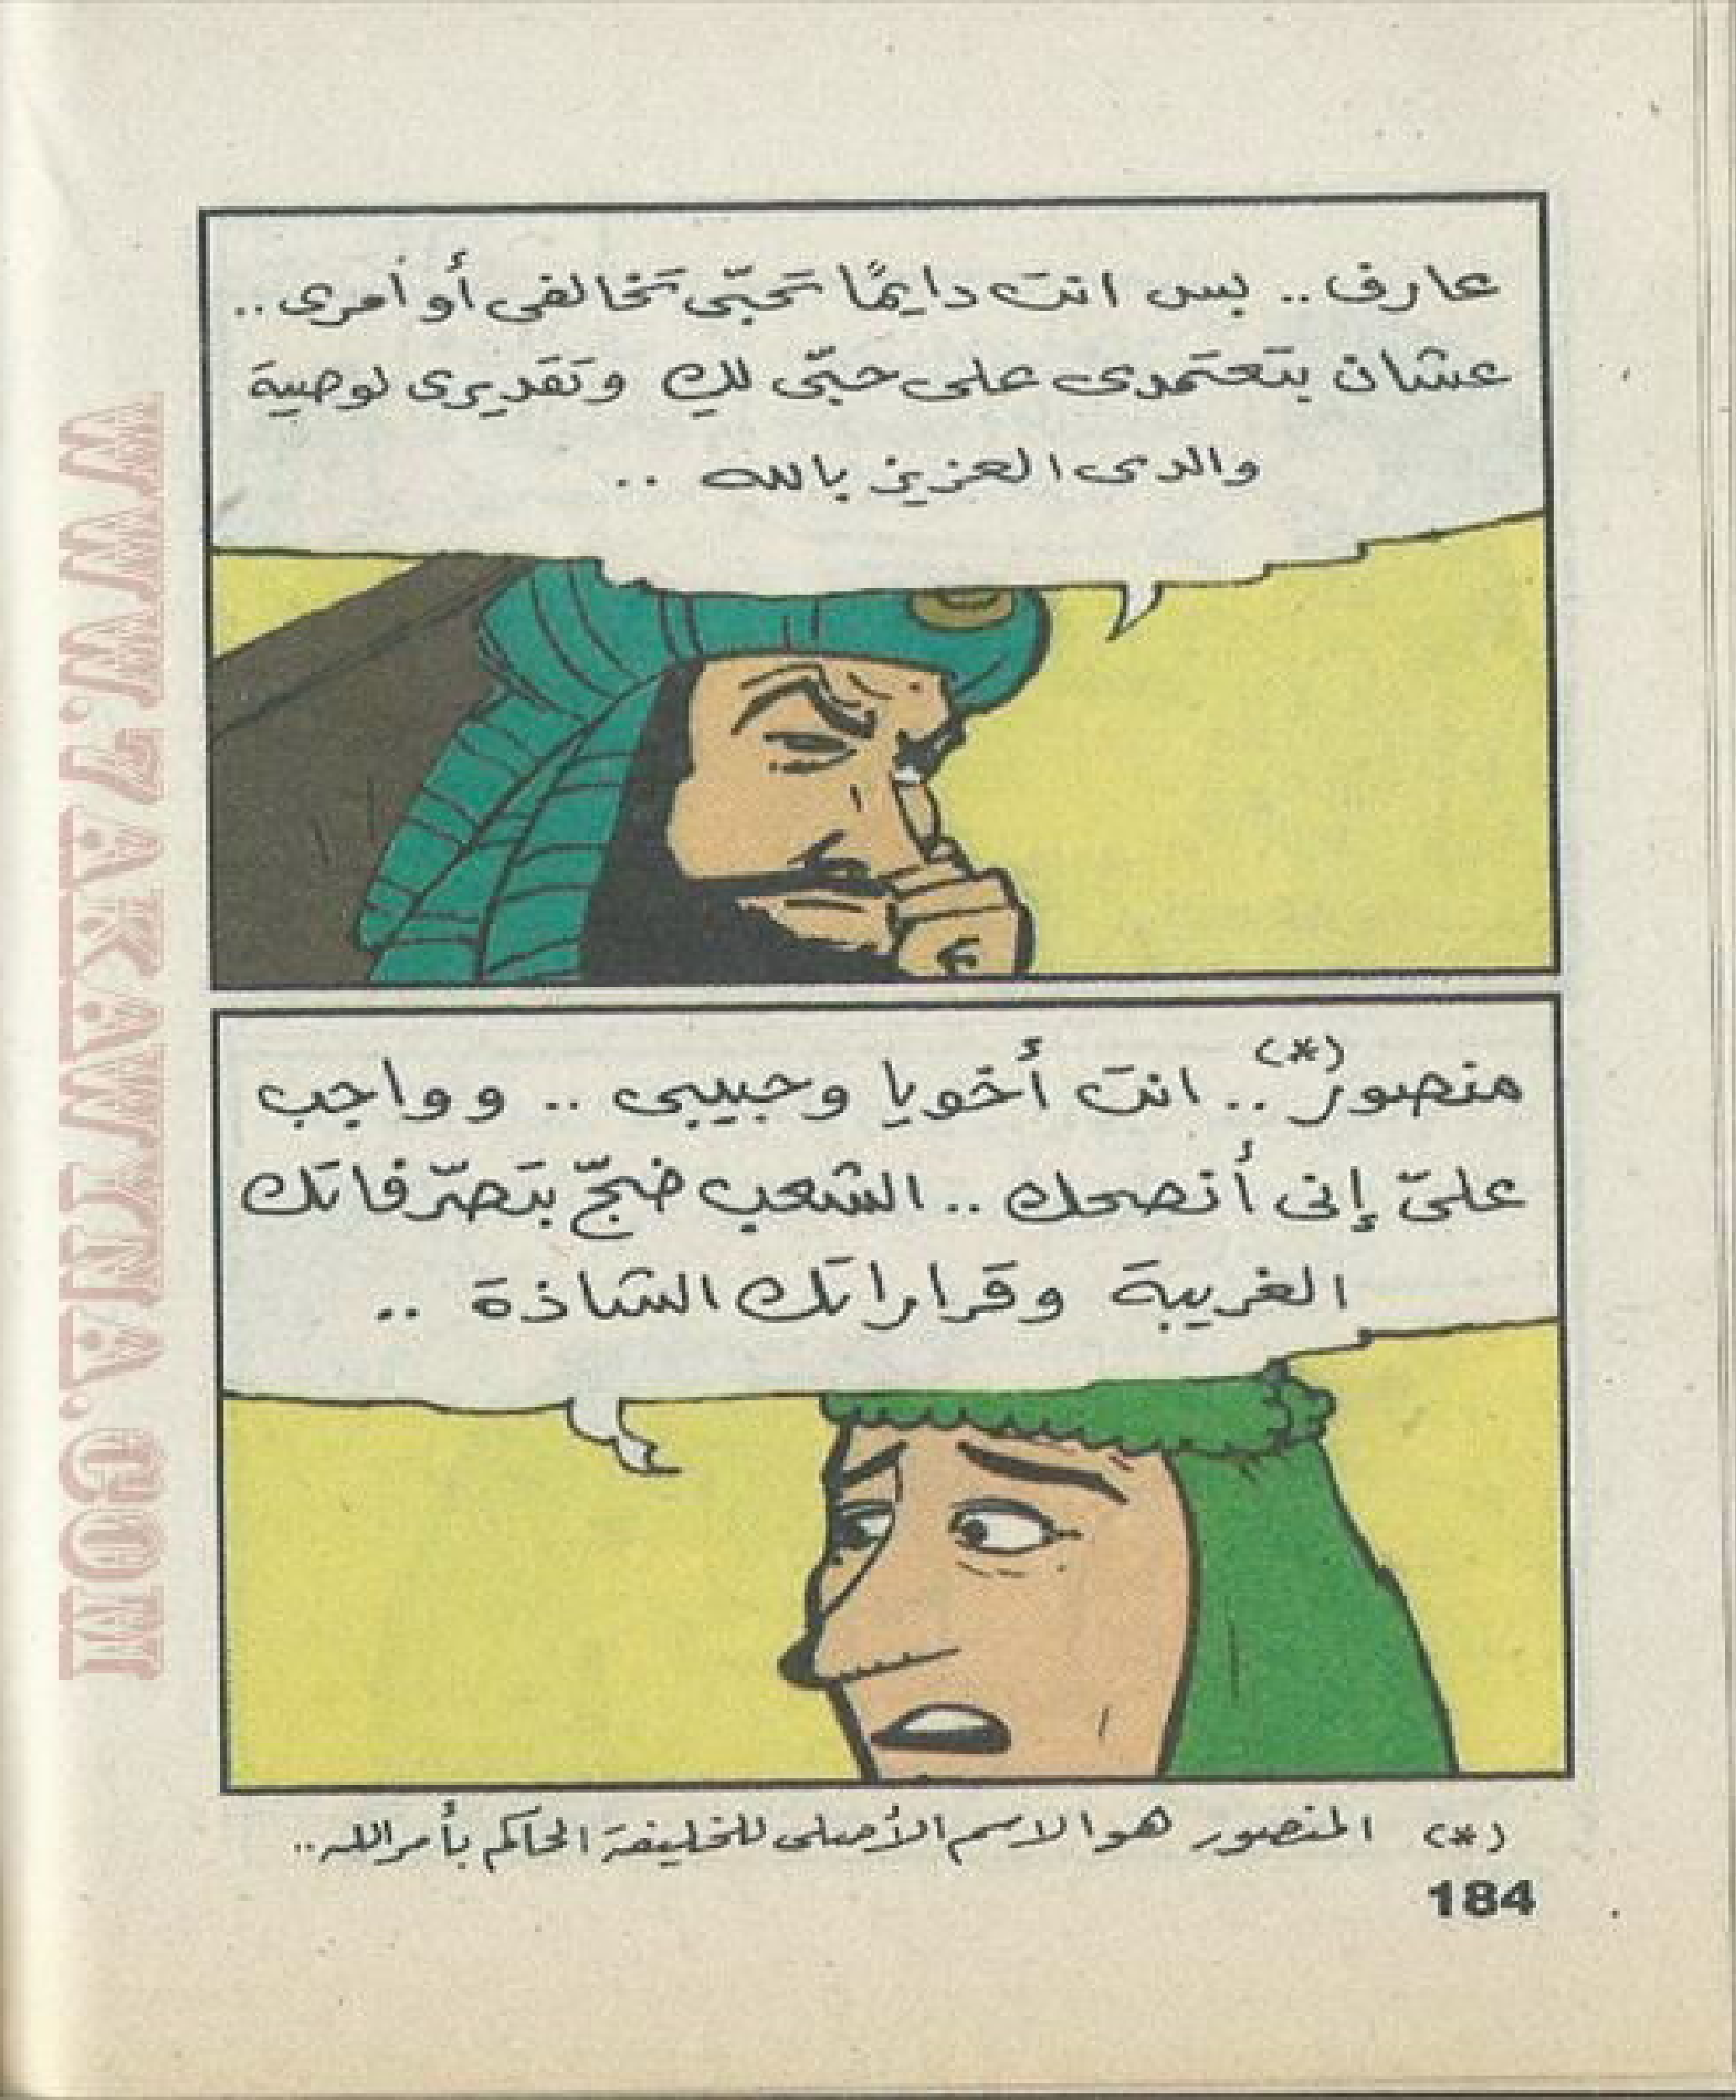 عارف .. بس انت دايمًا تحبّى تخالفى أوامرى ..
عشان بتعتمدى على حبّى لكِ وتقديرى لوصية
والدى العزيز بالله ..
منصور (*) .. انت أخويا وحبيبى .. وواجب
علىّ إنى أنصحك .. الشعب ضجّ بتصرّفاتك
الغريبة وقراراتك الشاذة ..
(*) المنصور هو الاسم الأصلى للخليفة الحاكم بأمر الله ..
184
WWW.7AKAWTNA.COM